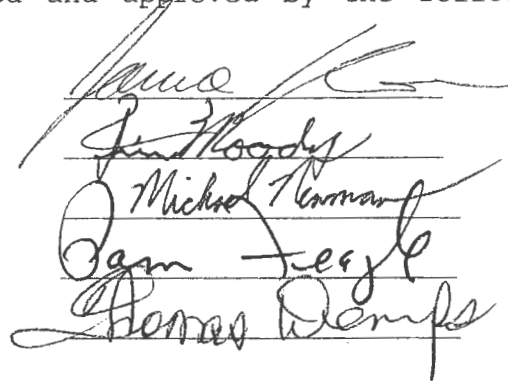 and approved by the
Jim Moody
Michael Newman
Pam Feagle
Thomas Demps